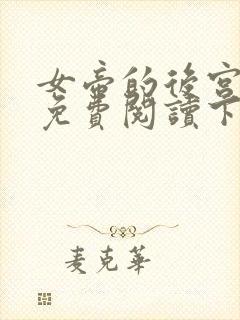 女帝的後宮
免費閱讀下
麦克華